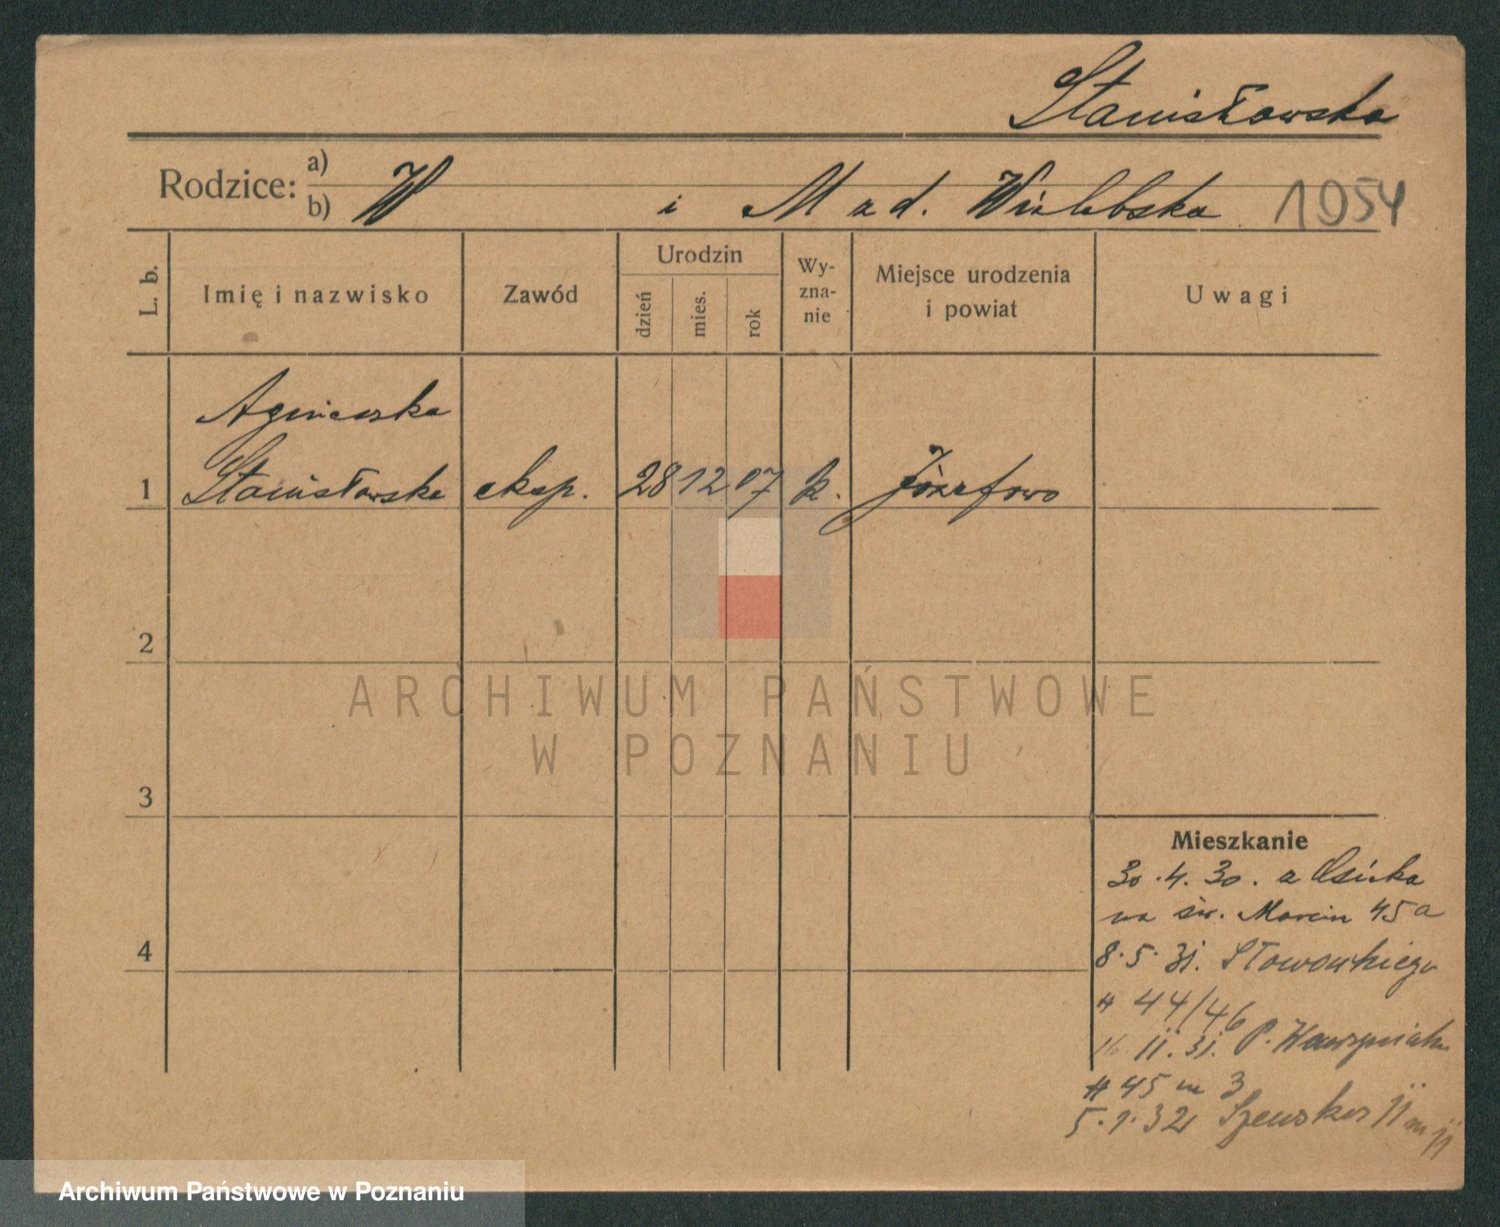 Stanisławska
Rodzice: a)
b) W i Mad. Wielebska 1954
L. b.
Imię i nazwisko
Zawód
Urodzin
dzień
mies.
rok
Wy-
zna-
nie
Miejsce urodzenia
i powiat
Uwagi
Agnieszka
1 Stanisławska eksp. 28 12 07 k. Józefowo
2
3
4
Mieszkanie
30.4.30. z Osieka
na św. Marcin 45a
8.5.31. Słowackiego
# 44/46
16.11.31. P. Wawrzyniaka
# 45 m 3
5.1.32 11 m 11
ARCHIWUM PAŃSTWOWE
W POZNANIU
Archiwum Państwowe w Poznaniu